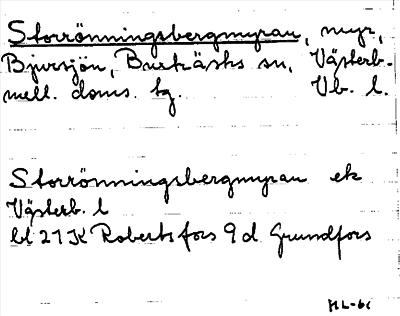 Storrönningsbergmyran, myr,
Bjursjön, Burträsks sn, Västerb.
mell. doms. tg. Vb. l.
Storrönningsbergmyran ek
Västerb. l
bl 21 K Robertsfors 9 d Grundfors
ML-61